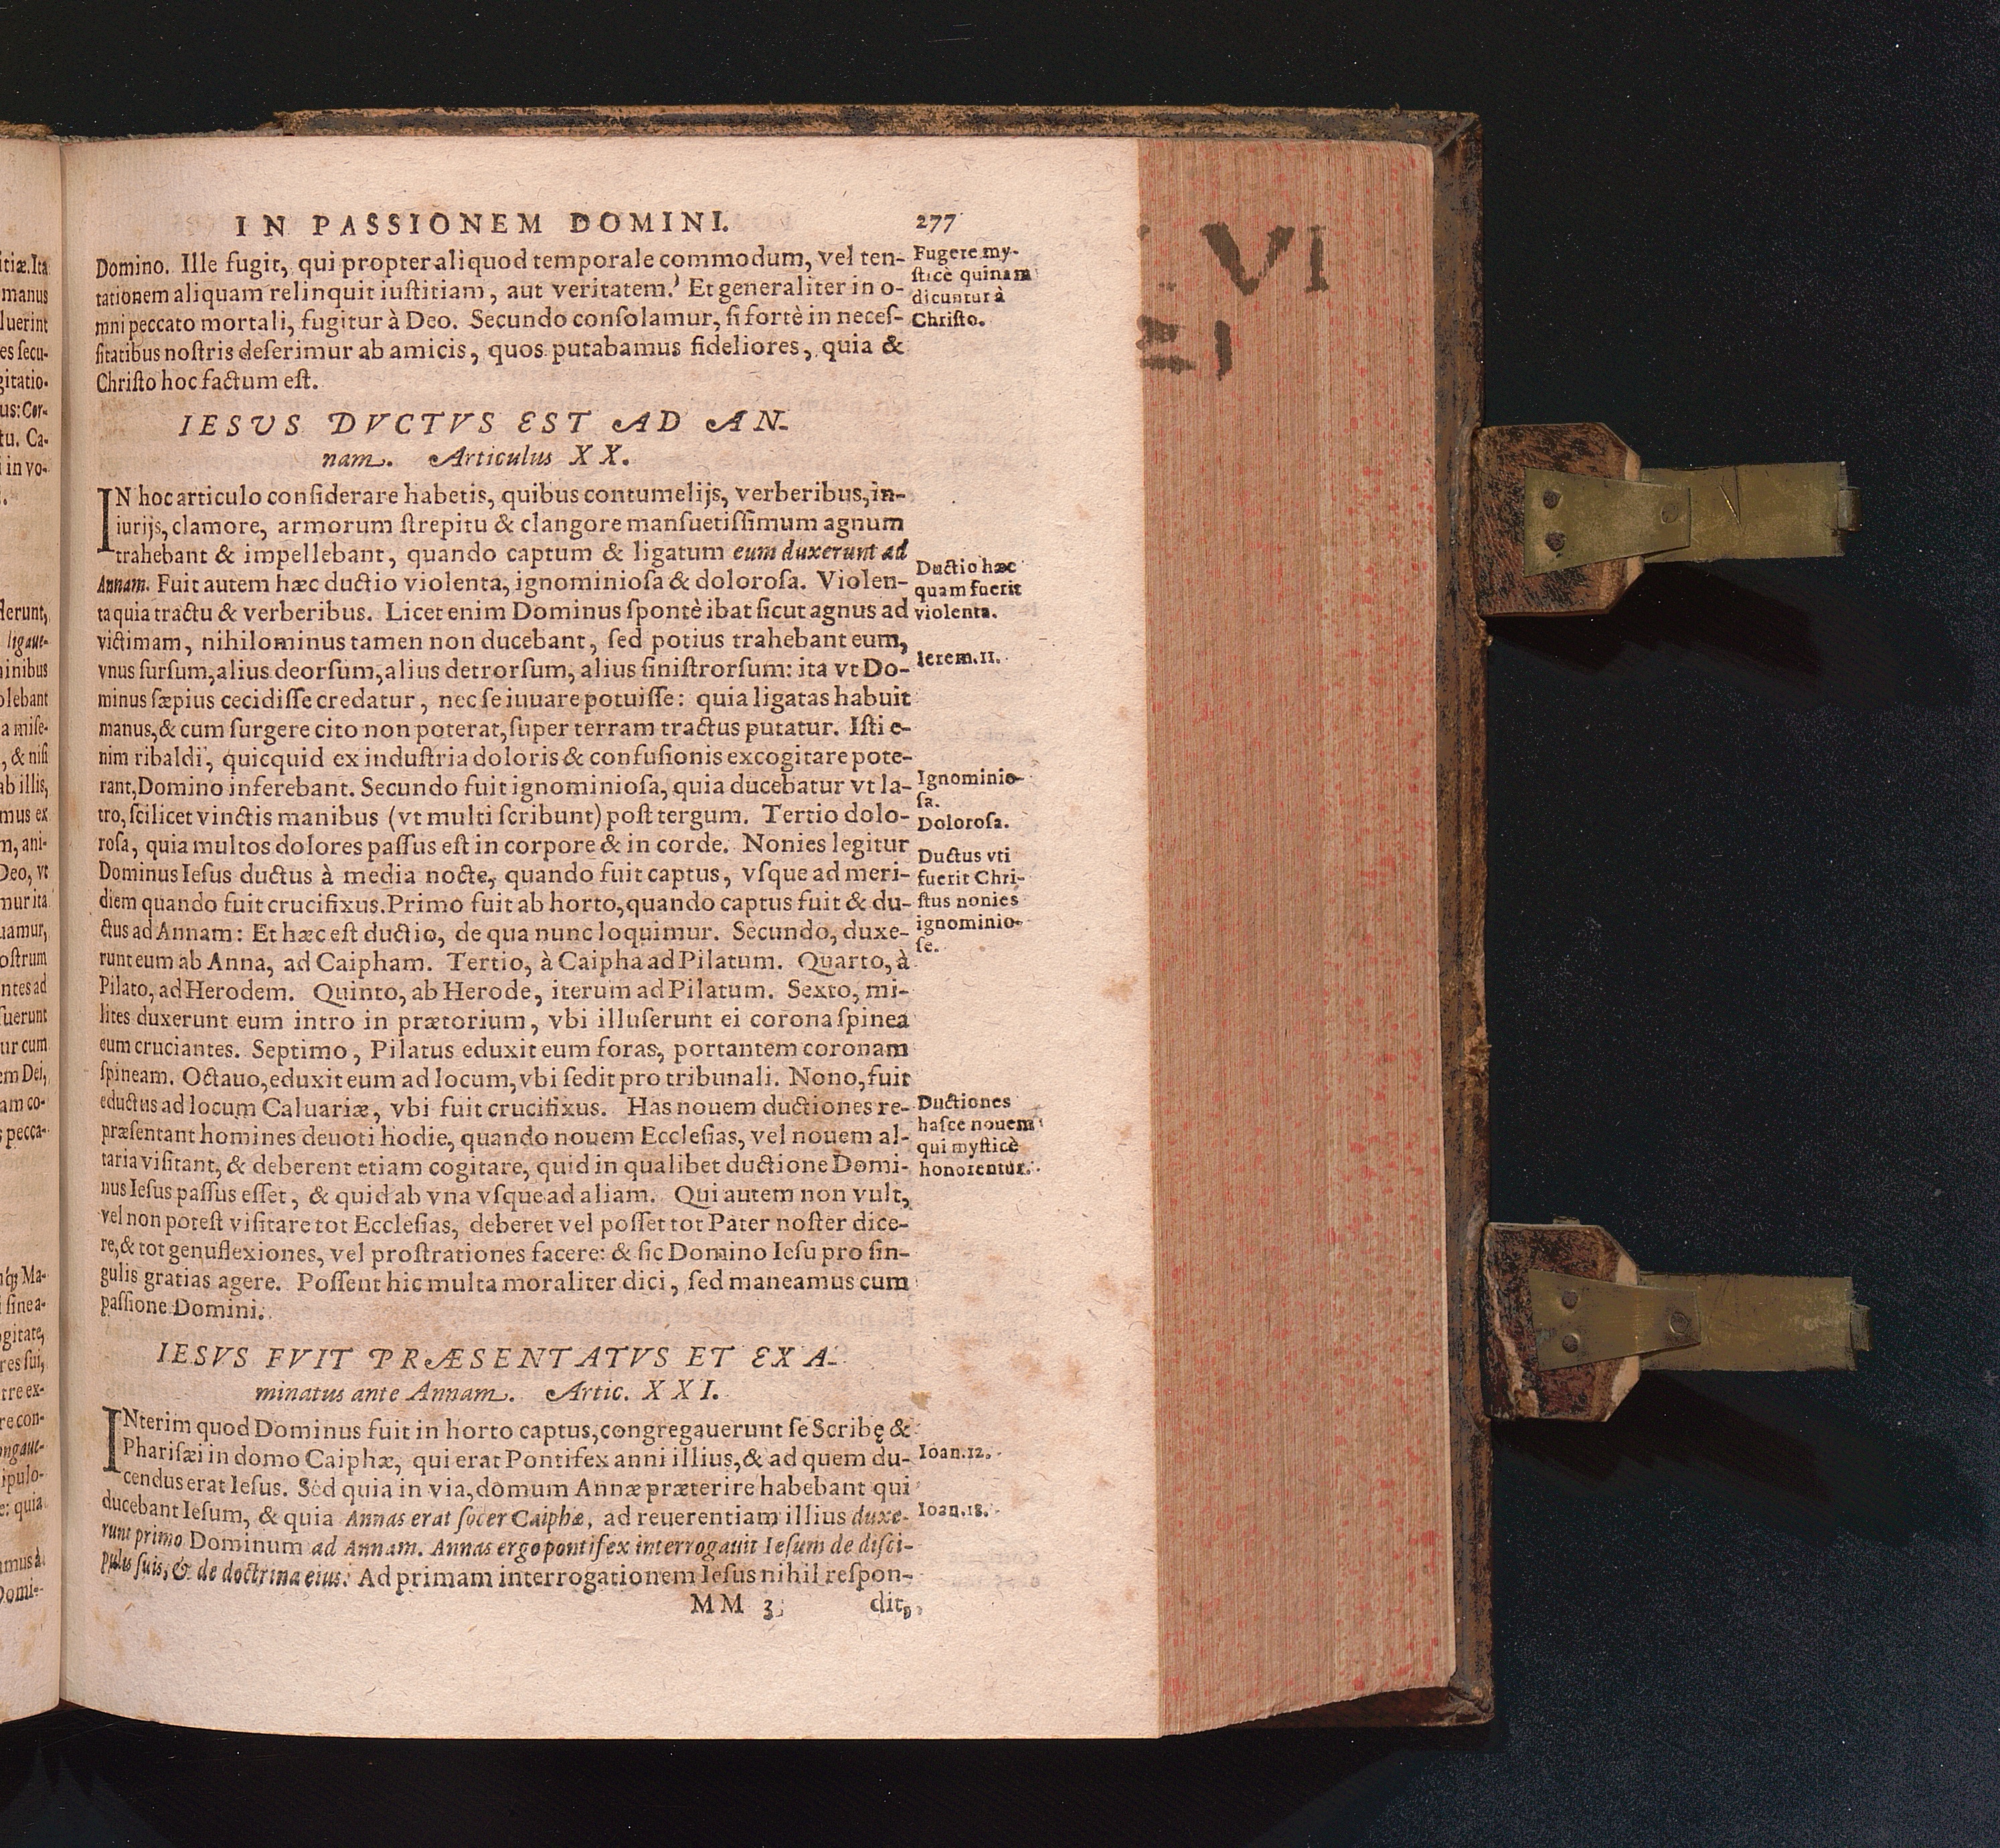 IN PASSIONEM DOMINI. 277
Domino. Ille fugit, qui propter aliquod temporale commodum, vel ten-
tationem aliquam relinquit iuſtitiam, aut veritatem. Et generaliter in o-
mni peccato mortali, fugitur à Deo. Secundo conſolamur, ſi fortè in neceſ-
ſitatibus noſtris deſerimur ab amicis, quos putabamus fideliores, quia &
Chriſto hoc factum eſt.
Fugere my-
ſticè quinam
dicuntur à
Chriſto.
IESUS DVCTVS EST AD AN-
nam. Articulus XX.
IN hoc articulo conſiderare habetis, quibus contumelijs, verberibus, in-
iurijs, clamore, armorum ſtrepitu & clangore manſuetiſſimum agnum
trahebant & impellebant, quando captum & ligatum eum duxerunt ad
Annam. Fuit autem hæc ductio violenta, ignominioſa & doloroſa. Violen-
ta quia tractu & verberibus. Licet enim Dominus ſpontè ibat ſicut agnus ad
victimam, nihilominus tamen non ducebant, ſed potius trahebant eum,
vnus ſurſum, alius deorſum, alius detrorſum, alius ſiniſtrorſum: ita vt Do-
minus ſæpius cecidiſſe credatur, nec ſe iuuare potuiſſe: quia ligatas habuit
manus, & cum ſurgere cito non poterat, ſuper terram tractus putatur. Iſti e-
nim ribaldi, quicquid ex induſtria doloris & confuſionis excogitare pote-
rant, Domino inferebant. Secundo fuit ignominioſa, quia ducebatur vt la-
tro, ſcilicet vinctis manibus (vt multi ſcribunt) poſt tergum. Tertio dolo-
roſa, quia multos dolores paſſus eſt in corpore & in corde. Nonies legitur
Dominus Ieſus ductus à media nocte, quando fuit captus, vſque ad meri-
diem quando fuit crucifixus. Primo fuit ab horto, quando captus fuit & du-
ctus ad Annam: Et hæc eſt ductio, de qua nunc loquimur. Secundo, duxe-
runt eum ab Anna, ad Caipham. Tertio, à Caipha ad Pilatum. Quarto, à
Pilato, ad Herodem. Quinto, ab Herode, iterum ad Pilatum. Sexto, mi-
lites duxerunt eum intro in prætorium, vbi illuſerunt ei corona ſpinea
eum cruciantes. Septimo, Pilatus eduxit eum foras, portantem coronam
ſpineam. Octauo, eduxit eum ad locum, vbi ſedit pro tribunali. Nono, fuit
eductus ad locum Caluariæ, vbi fuit crucifixus. Has nouem ductiones re-
præſentant homines deuoti hodie, quando nouem Eccleſias, vel nouem al-
taria viſitant, & deberent etiam cogitare, quid in qualibet ductione Domi-
nus Ieſus paſſus eſſet, & quid ab vna vſque ad aliam. Qui autem non vult,
vel non poteſt viſitare tot Eccleſias, deberet vel poſſet tot Pater noſter dice-
re, & tot genuflexiones, vel proſtrationes facere: & ſic Domino Ieſu pro ſin-
gulis gratias agere. Poſſent hic multa moraliter dici, ſed maneamus cum
paſſione Domini.
Ductio hæc
quam fuerit
violenta.
Ierem.11.
Ignominio-
ſa.
Doloroſa.
Ductus vti
fuerit Chri-
ſtus nonies
ignominio-
ſe.
Ductiones
haſce nouem
qui myſticè
honorentur.
IESVS FVIT PRÆSENTATVS ET EXA-
minatus ante Annam. Artic. XXI.
INterim quod Dominus fuit in horto captus, congregauerunt ſe Scribę &
Phariſæi in domo Caiphæ, qui erat Pontifex anni illius, & ad quem du-
cendus erat Ieſus. Sed quia in via, domum Annæ præterire habebant qui
ducebant Ieſum, & quia Annas erat ſocer Caiphæ, ad reuerentiam illius duxe-
runt primo Dominum ad Annam. Annas ergo pontifex interrogauit Ieſum de diſci-
pulis ſuis, & de doctrina eius. Ad primam interrogationem Ieſus nihil reſpon-
Ioan.12.
Ioan.18.
MM 3 dit,
VI